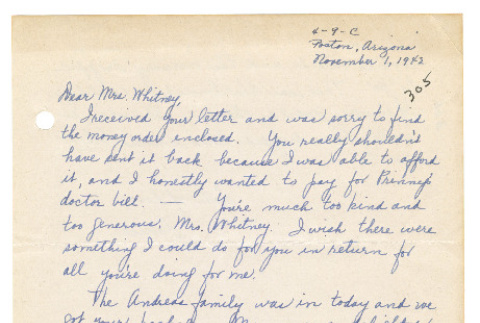 4-9-C
Poston, Arizona
November 1, 1942
305
Dear Mrs. Whitney,
I received your letter and was sorry to find
the money order enclosed. You really shouldn't
have sent it back because I was able to afford
it, and I honestly wanted to pay for
doctor bill. — You're much too kind and
too generous, Mrs. Whitney. I wish there were
something I could do for you in return for
all you're doing for me.
The Andreas family was in today and we
got your